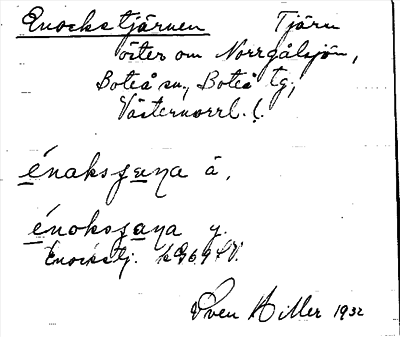 Enockstjärnen Tjärn
öster om Norrgålsjön,
Boteå sn, Boteå tg,
Västernorrl. l.
énaksʃæna ä,
énoksʃana y.
Enockstj.
Sven Hiller 1932